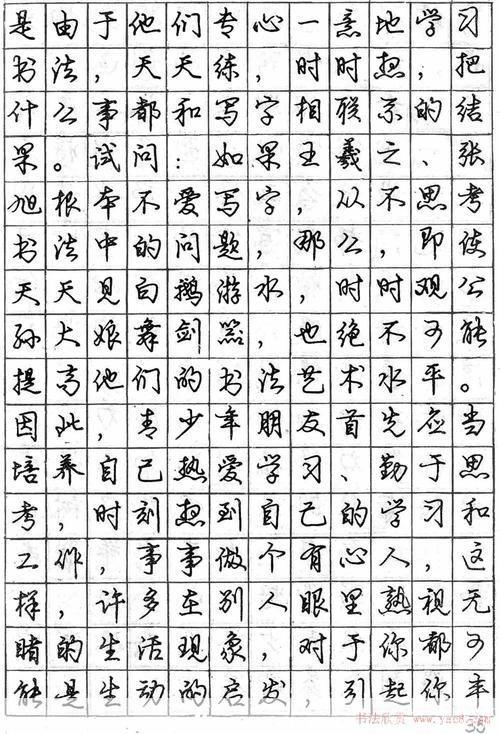 是由于他们专心一意地学习
书法，天天练，时时想，把
什么事都和写字相联系的结
果。试问：如果王羲之、张
旭根本不爱写字，从不思考
书法中的问题，那么，即使
天天见白鹅游水，时时观公
孙大娘舞剑器，也绝不可能
提高他们的书法艺术水平。
因此，青少年朋友首先应当
培养自己热爱学习、勤于思
考，时刻想到自己的学习和
工作，事事做个有心人，这
样，许多在别人眼里熟视无
睹的生活现象，对于你都可
能是生动的启发，引起你丰
35
书法欣赏 www.yac8.com